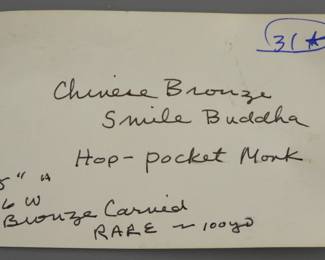 31★
Chinese Bronze
Smile Buddha
Hop-pocket Monk
5" H
6 W
Bronze Carvied
RARE ~ 100yo